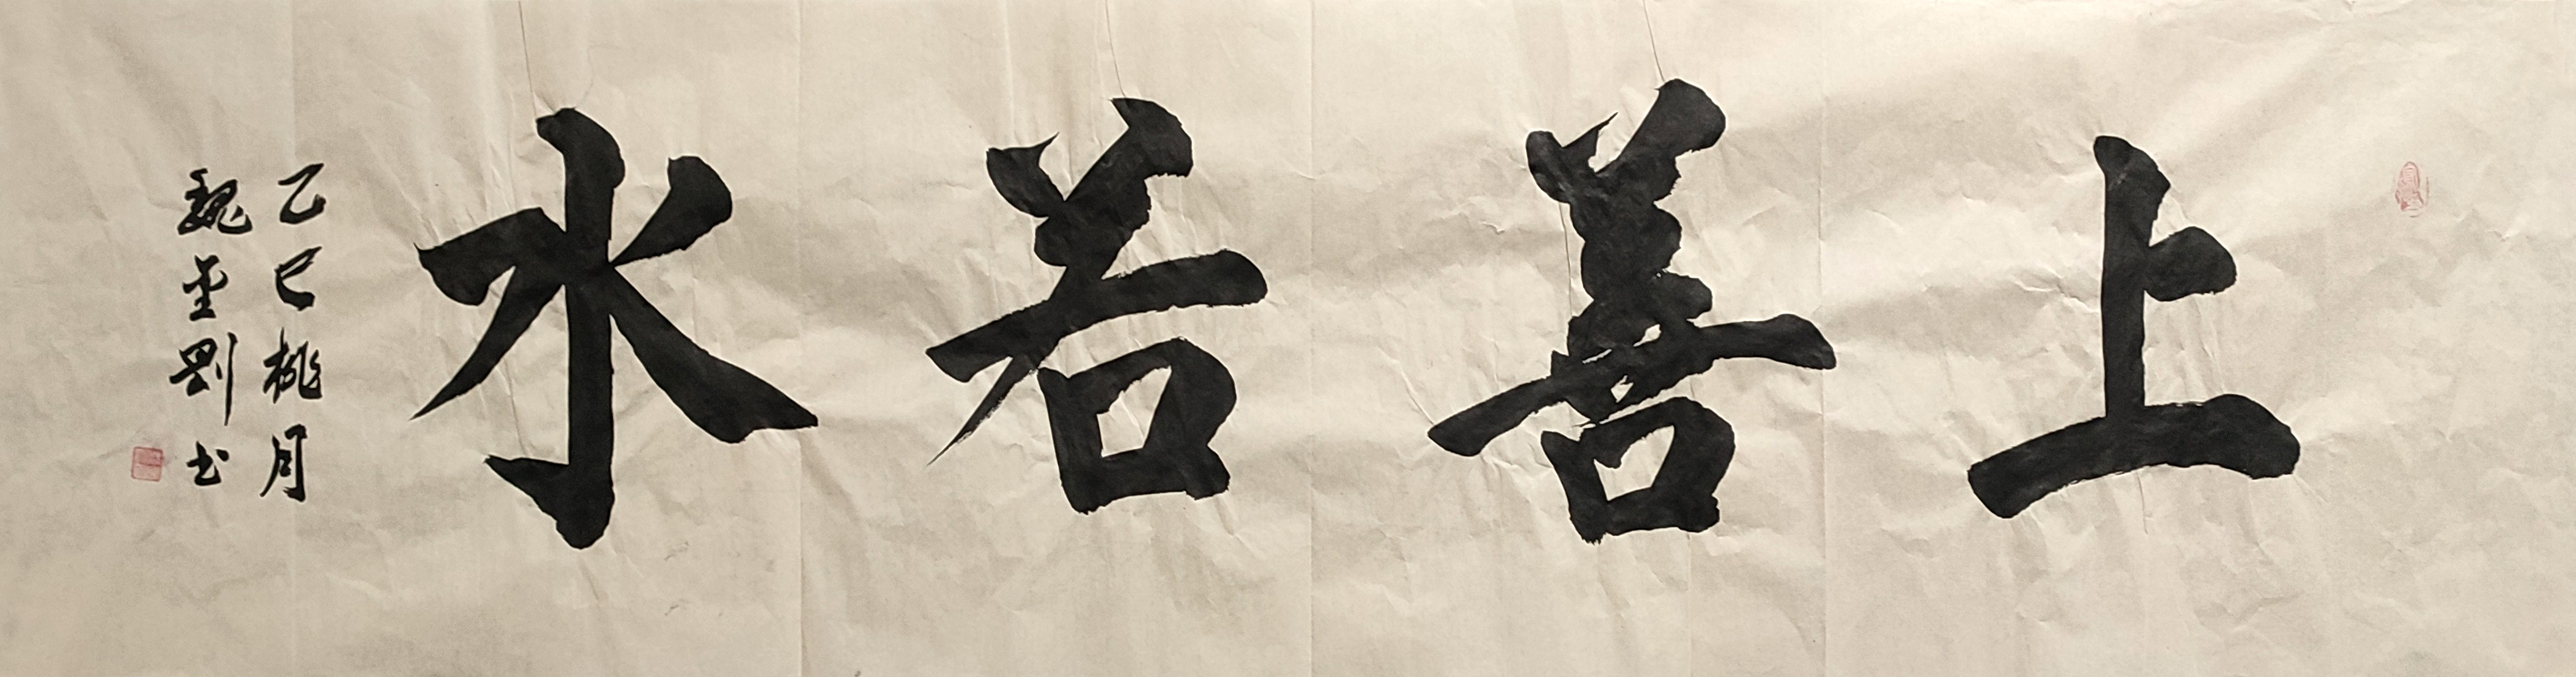 上善若水
乙巳桃月
魏金剛书